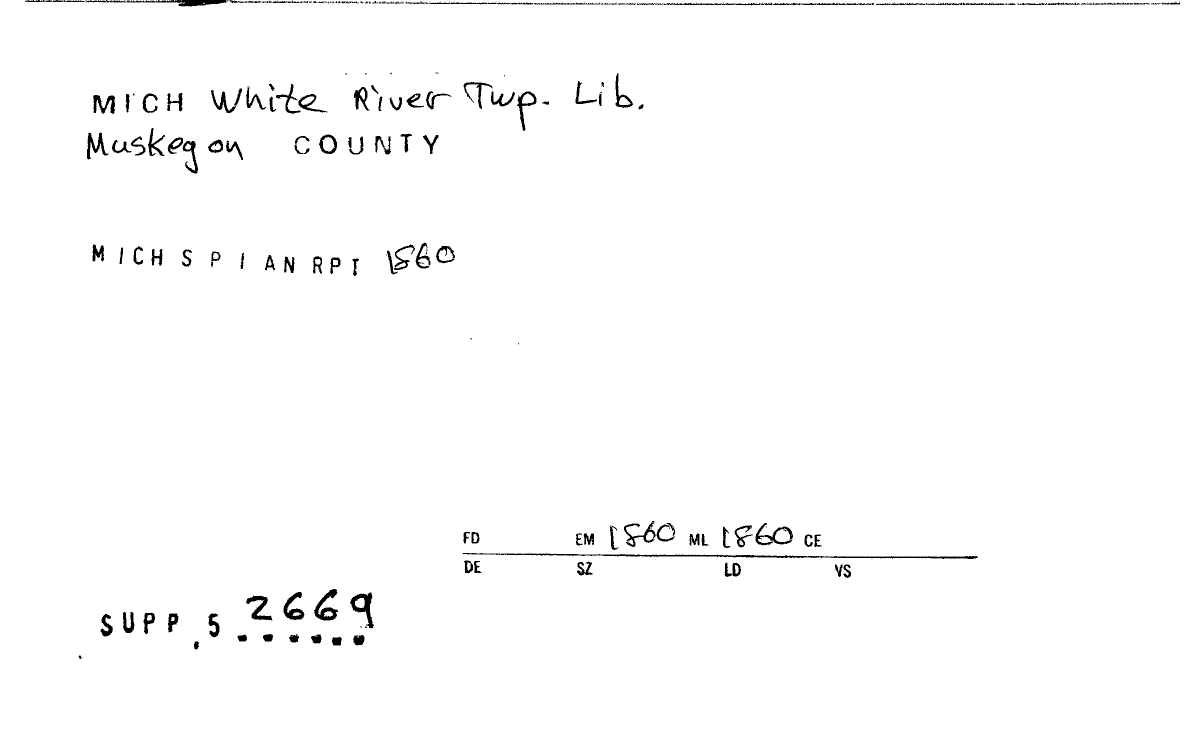 MICH White River Twp. Lib.
Muskegon COUNTY
MICH S P I AN RPT 1860
FD EM 1860 ML 1860 CE
DE SZ LD VS
SUPP.5 2669